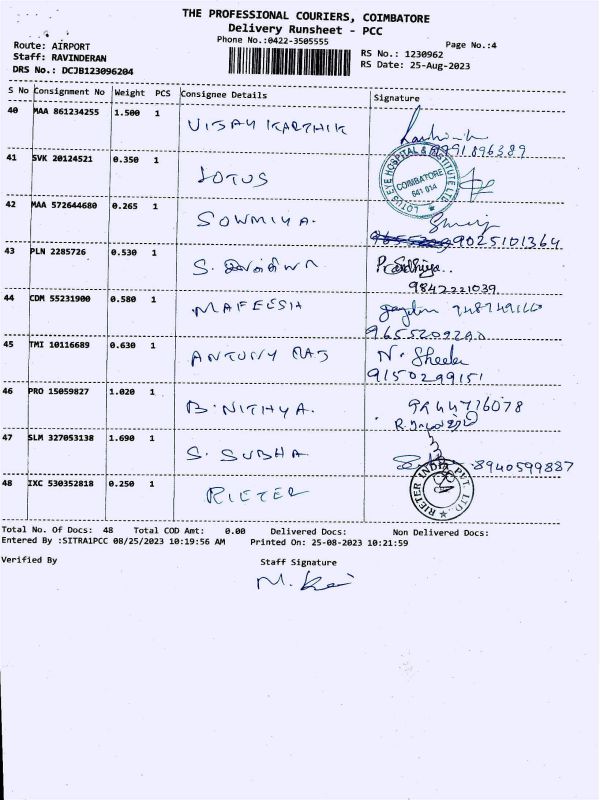 THE PROFESSIONAL COURIERS, COIMBATORE
Delivery Runsheet - PCC
Phone No.:0422-3505555
Page No.:4
Route: AIRPORT
Staff: RAVINDERAN
DRS No.: DCJB123096204
RS No.: 1230962
RS Date: 25-Aug-2023
S No Consignment No Weight PCS Consignee Details Signature
40 MAA 861234255 1.500 1 VIJAY KARTHIK
41 SVK 20124521 0.350 1 LOTUS
LOTUS EYE HOSPITAL & INSTITUTE LTD. COIMBATORE 641 014
42 MAA 572644680 0.265 1 SOWMIYA.
9025101364
43 PLN 2285726 0.530 1 S.
9842221039
44 CDM 55231900 0.580 1 MAFEESH
9655209290
45 TMI 10116689 0.630 1 ANTONY RAJ N. Sheela
9150299151
46 PRO 15059827 1.020 1 B. NITHYA. 9244716078
47 SLM 327053138 1.690 1 S. SUBHA 8940599887
48 IXC 530352818 0.250 1 RIETER
RIETER INDIA PVT. LTD.
Total No. Of Docs: 48 Total COD Amt: 0.00 Delivered Docs: Non Delivered Docs:
Entered By :SITRA1PCC 08/25/2023 10:19:56 AM Printed On: 25-08-2023 10:21:59
Verified By Staff Signature